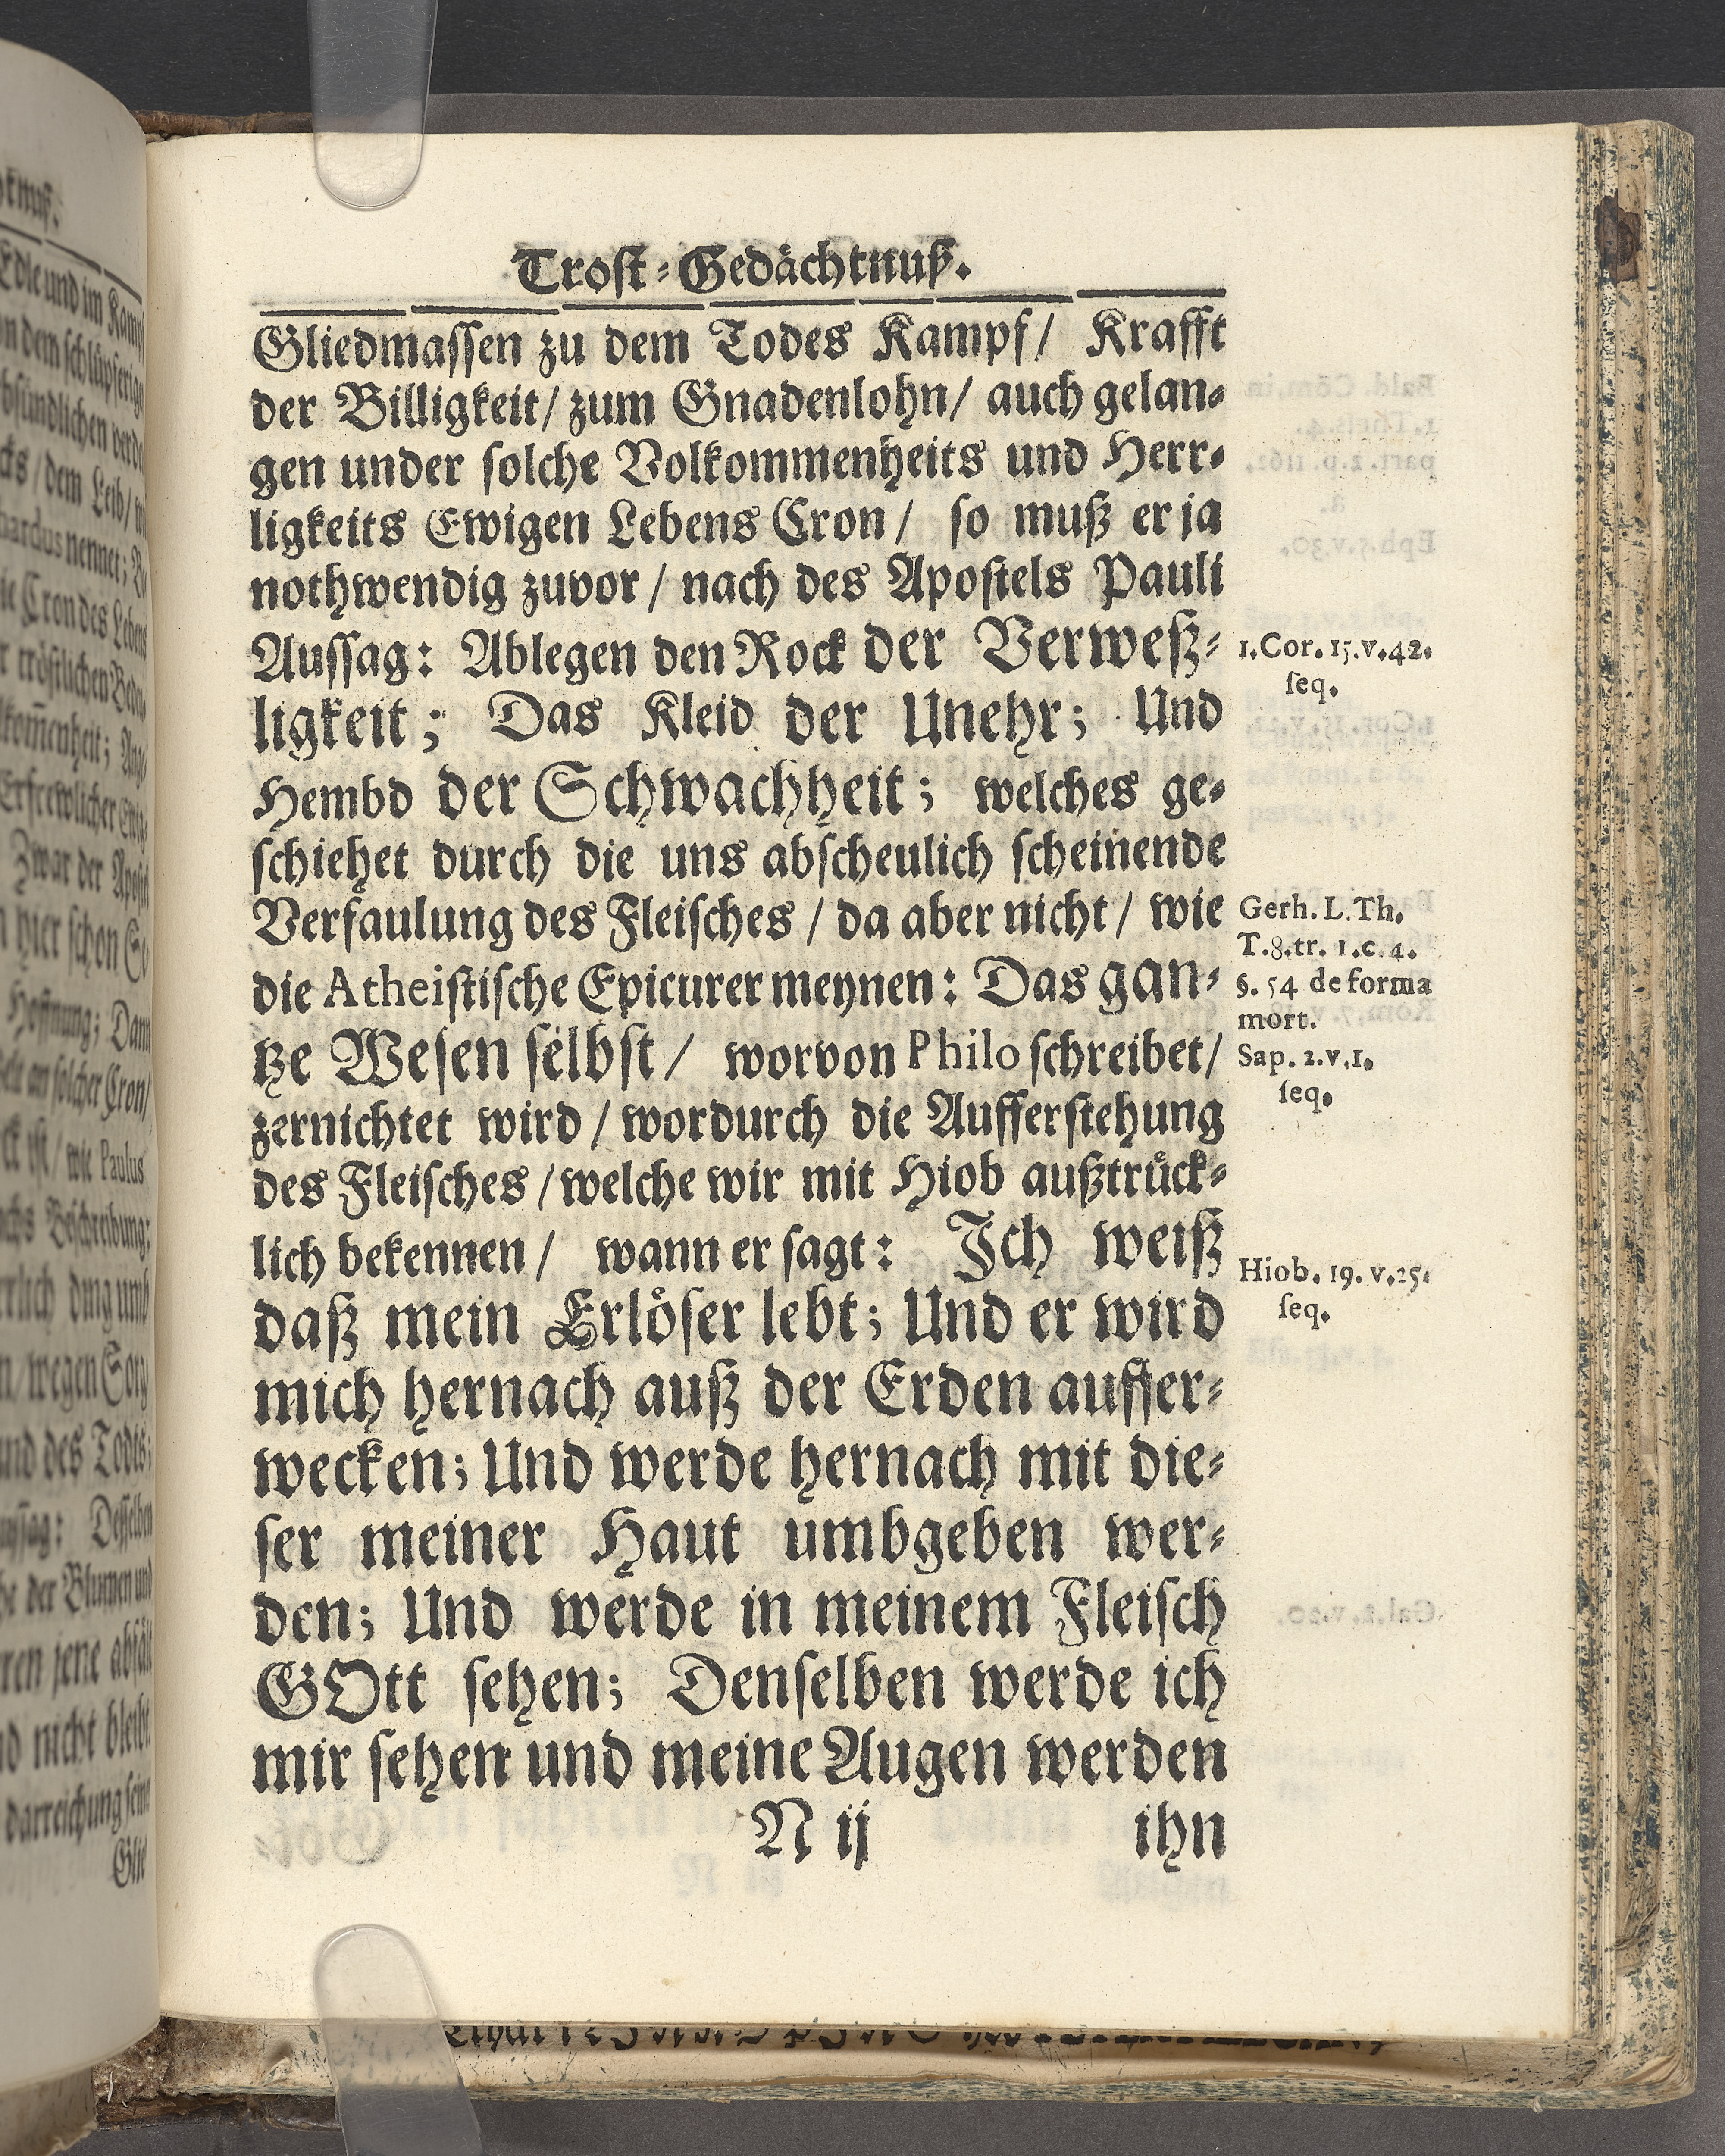 Trost-Gedächtnuß.
Gliedmassen zu dem Todes Kampf/ Krafft
der Billigkeit/ zum Gnadenlohn/ auch gelan-
gen under solche Volkommenheits und Herr-
ligkeits Ewigen Lebens Cron/ so muß er ja
nothwendig zuvor/ nach des Apostels Pauli
Aussag: Ablegen den Rock der Verweß-
ligkeit; Das Kleid der Unehr; Und
Hembd der Schwachheit; welches ge-
schiehet durch die uns abscheulich scheinende
Verfaulung des Fleisches/ da aber nicht/ wie
die Atheistische Epicurer meynen: Das gan-
tze Wesen selbst/ worvon Philo schreibet/
zernichtet wird/ wordurch die Aufferstehung
des Fleisches/ welche wir mit Hiob außtrück-
lich bekennen/ wann er sagt: Ich weiß
daß mein Erlöser lebt; Und er wird
mich hernach auß der Erden auffer-
wecken; Und werde hernach mit die-
ser meiner Haut umbgeben wer-
den; Und werde in meinem Fleisch
GOtt sehen; Denselben werde ich
mir sehen und meine Augen werden
N ij ihn
1. Cor. 15. v. 42.
seq.
Gerh. L. Th.
T. 8. tr. 1. c. 4.
§. 54 de forma
mort.
Sap. 2. v. 1.
seq.
Hiob. 19. v. 25.
seq.